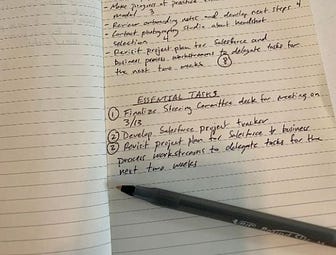 - Make progress at practice
model 3
- Review onboarding notes and develop next steps 4
- Contact photography studio about headshot
selection 4
- Revisit project plan for Salesforce and
business process workstreams to delegate tasks for
the next two weeks 8
ESSENTIAL TASKS
1 Finalize Steering Committee deck for meeting on
3/13
2 Develop Salesforce project tracker
3 Revisit project plan for Salesforce & business
process workstreams to delegate tasks for the
next two weeks